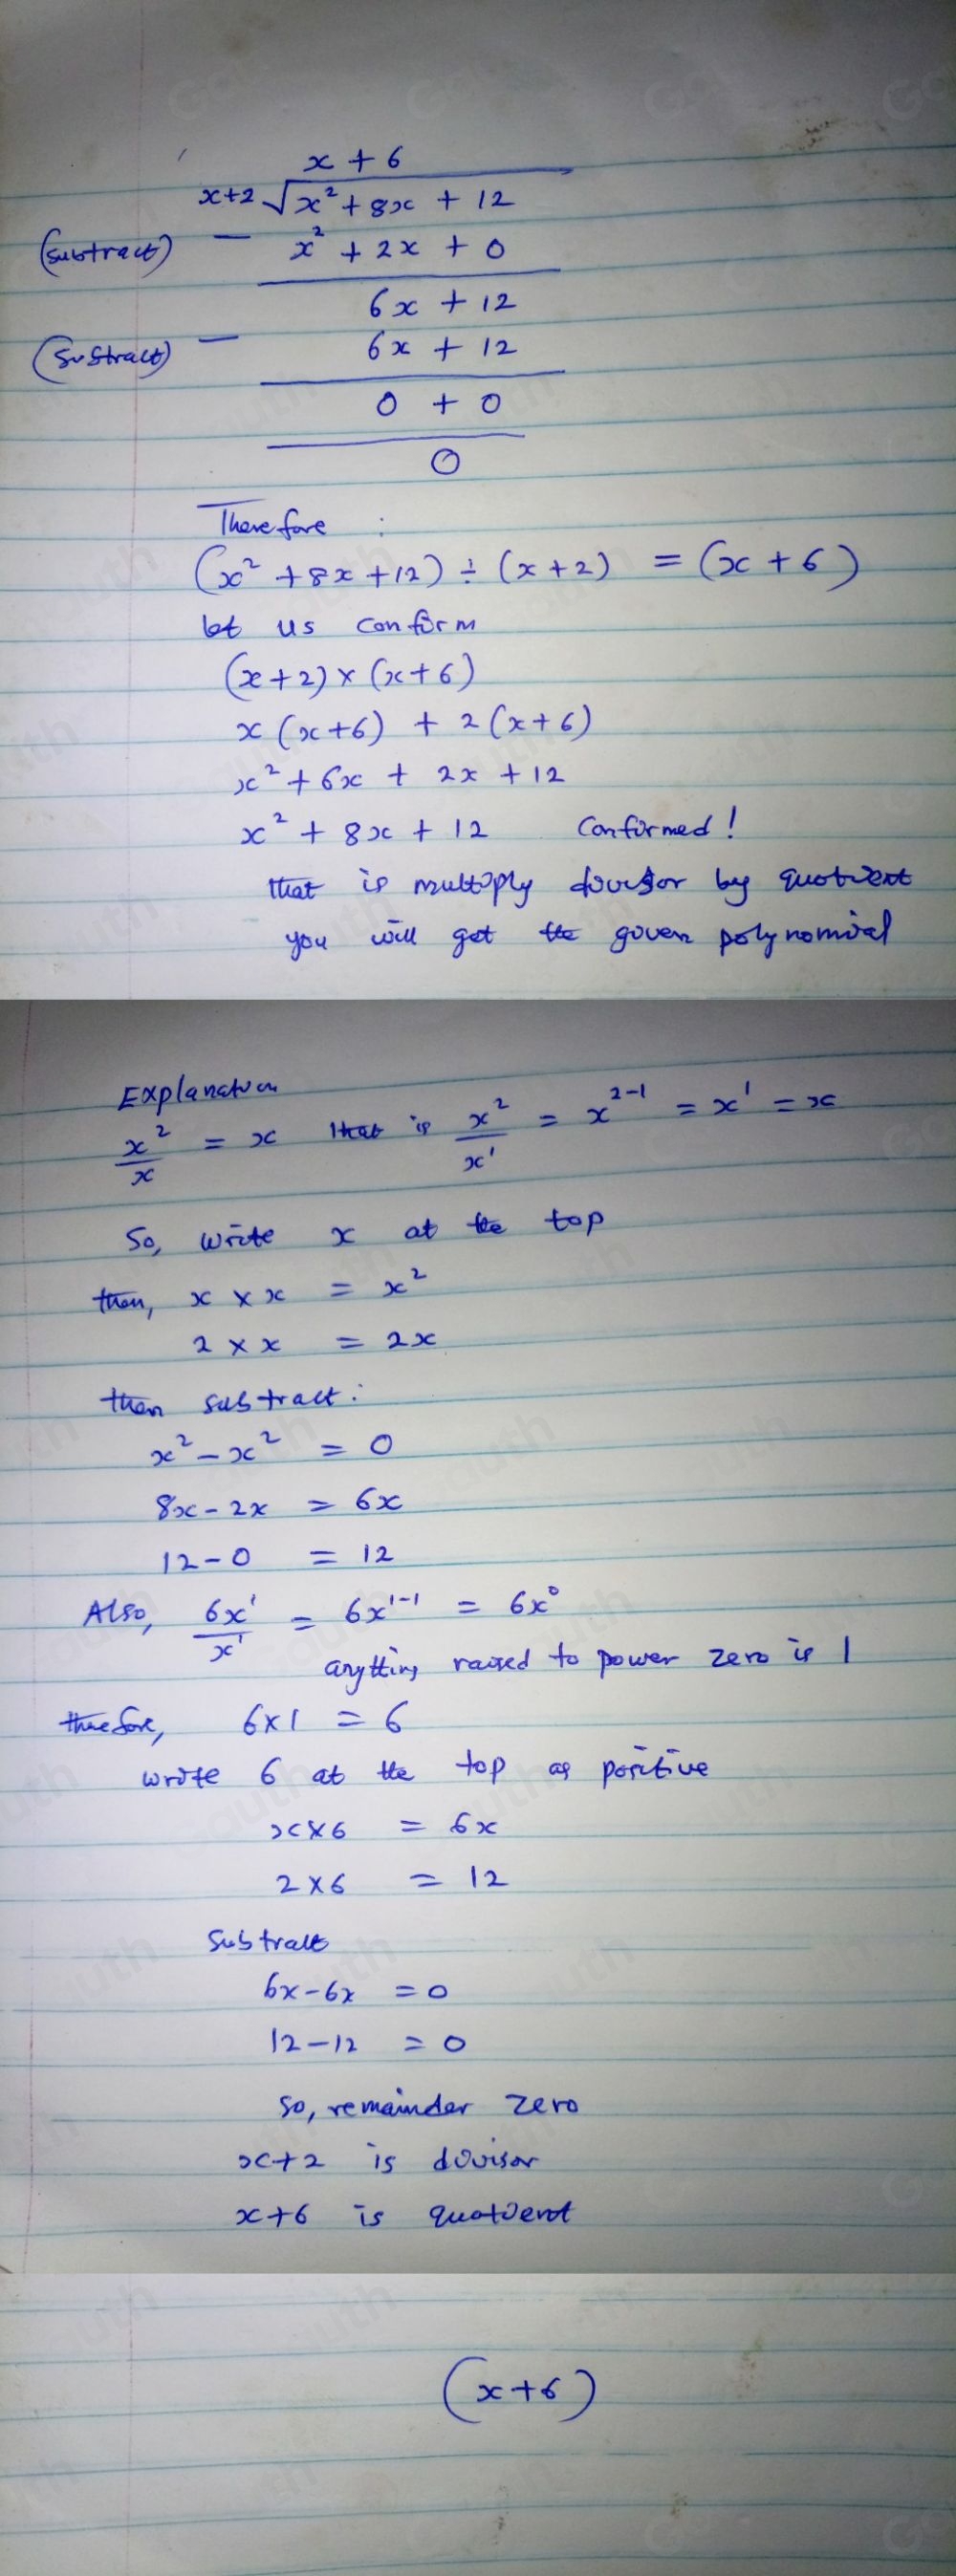 x + 6
x+2 √x² + 8x + 12
(subtract) − x² + 2x + 0
6x + 12
(Subtract) − 6x + 12
0 + 0
0
Therefore :
(x² + 8x + 12) ÷ (x + 2) = (x + 6)
let us conform
(x + 2) × (x + 6)
x (x + 6) + 2 (x + 6)
x² + 6x + 2x + 12
x² + 8x + 12 Conformed!
that is multiply divisor by quotient
you will get the given polynomial
Explanation
x²/x = x that is x²/x¹ = x²⁻¹ = x¹ = x
So, write x at the top
then, x × x = x²
2 × x = 2x
then subtract:
x² − x² = 0
8x − 2x = 6x
12 − 0 = 12
Also, 6x¹/x¹ = 6x¹⁻¹ = 6x⁰
anything raised to power zero is 1
therefore, 6×1 = 6
write 6 at the top as positive
x×6 = 6x
2×6 = 12
Subtract
6x − 6x = 0
12 − 12 = 0
So, remainder zero
x+2 is divisor
x+6 is quotient
(x+6)